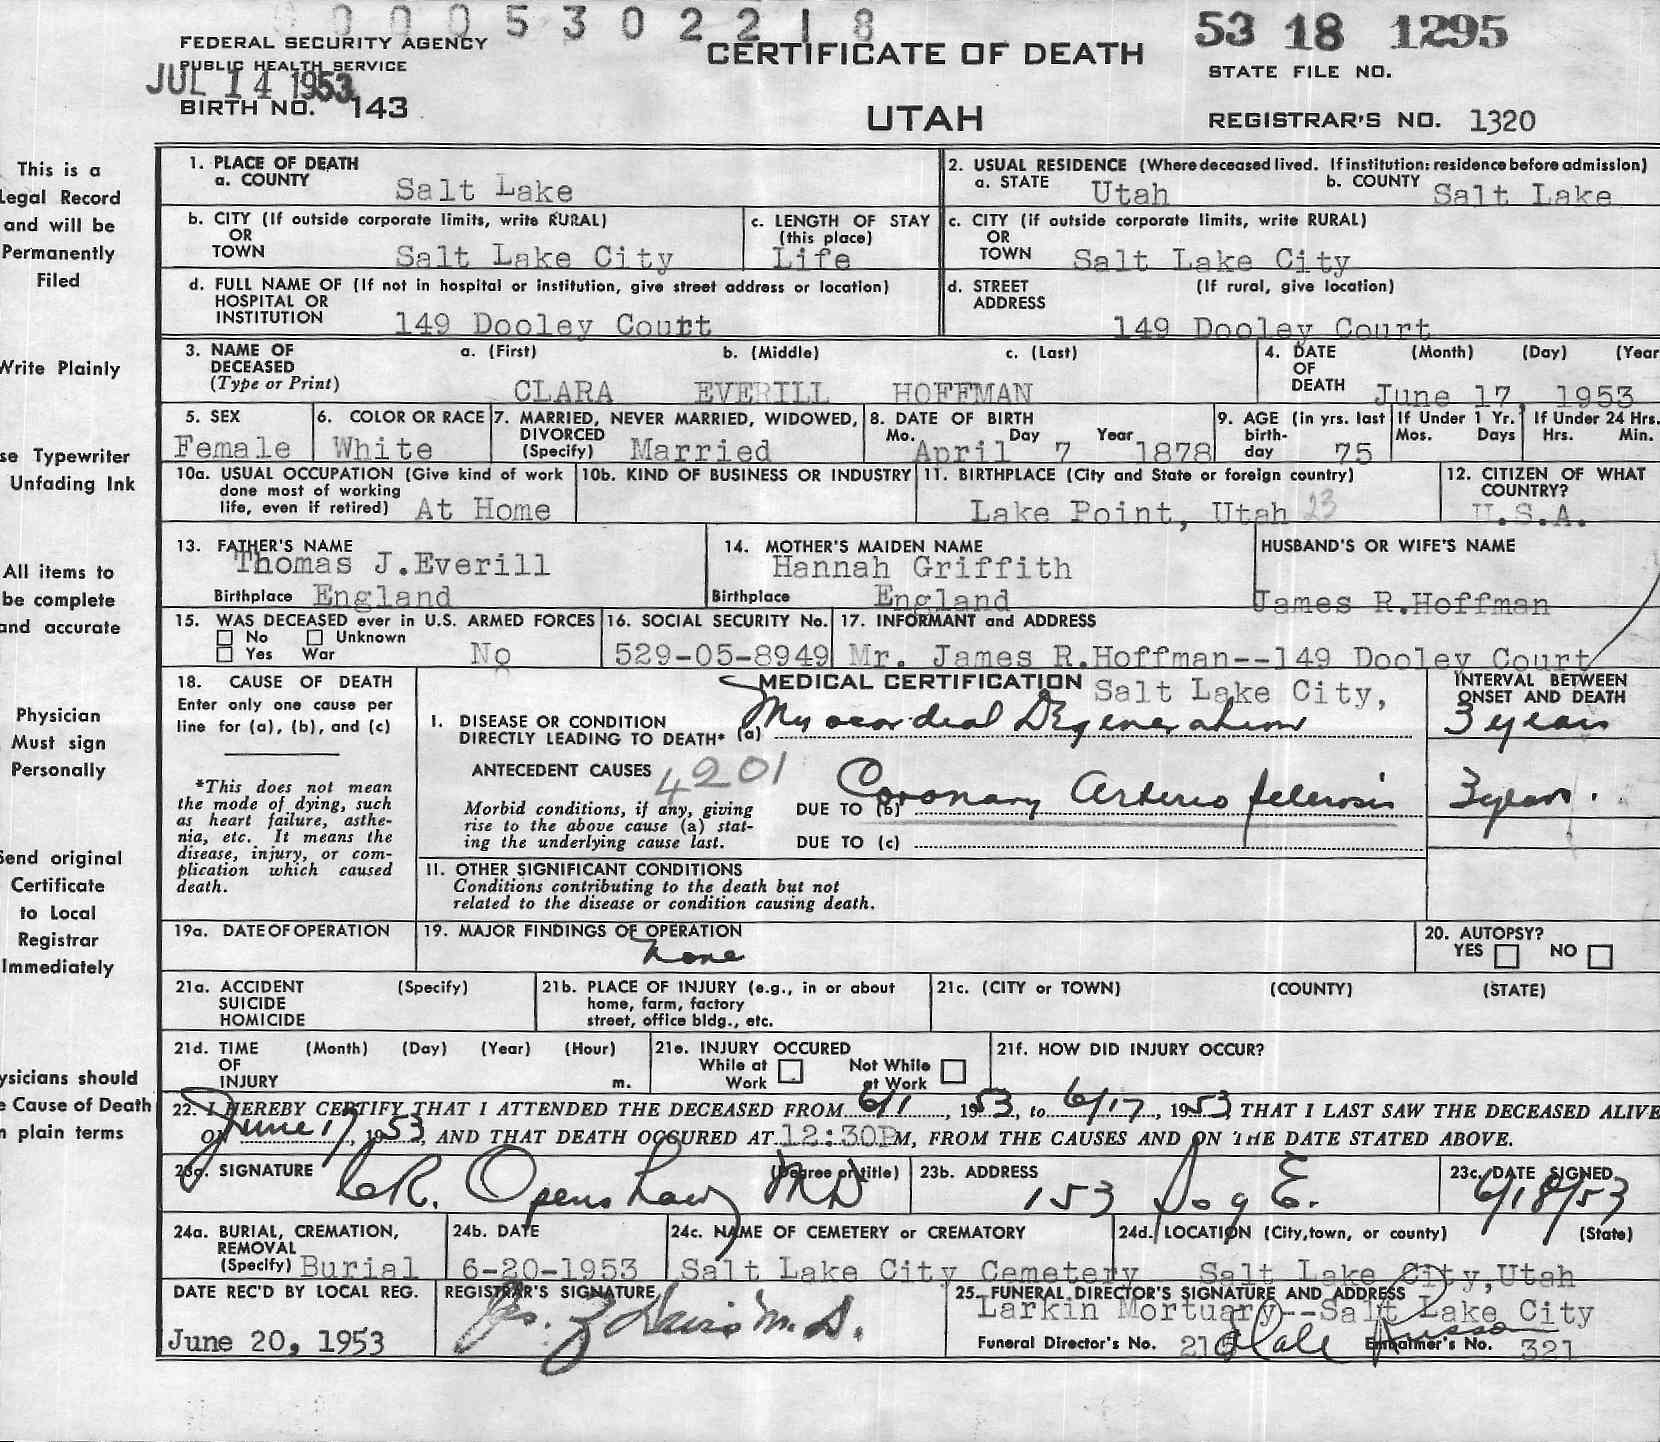 0 0 0 5 3 0 2 2 1 8
FEDERAL SECURITY AGENCY
PUBLIC HEALTH SERVICE
JUL 14 1953
BIRTH NO. 143
CERTIFICATE OF DEATH
UTAH
53 18 1295
STATE FILE NO.
REGISTRAR'S NO. 1320
This is a
Legal Record
and will be
Permanently
Filed
Write Plainly
se Typewriter
Unfading Ink
All items to
be complete
and accurate
Physician
Must sign
Personally
Send original
Certificate
to Local
Registrar
Immediately
ysicians should
e Cause of Death
n plain terms
1. PLACE OF DEATH
a. COUNTY Salt Lake
2. USUAL RESIDENCE (Where deceased lived. If institution: residence before admission)
a. STATE Utah b. COUNTY Salt Lake
b. CITY (If outside corporate limits, write RURAL)
OR
TOWN Salt Lake City
c. LENGTH OF STAY
(this place)
Life
c. CITY (if outside corporate limits, write RURAL)
OR
TOWN Salt Lake City
d. FULL NAME OF (If not in hospital or institution, give street address or location)
HOSPITAL OR
INSTITUTION 149 Dooley Court
d. STREET (If rural, give location)
ADDRESS
149 Dooley Court
3. NAME OF DECEASED
(Type or Print)
a. (First) b. (Middle) c. (Last)
CLARA EVERILL HOFFMAN
4. DATE OF DEATH (Month) (Day) (Year
June 17, 1953
5. SEX
Female
6. COLOR OR RACE
White
7. MARRIED, NEVER MARRIED, WIDOWED,
DIVORCED
(Specify) Married
8. DATE OF BIRTH
Mo. Day Year
April 7 1878
9. AGE (in yrs. last
birth-
day 75
If Under 1 Yr.
Mos. Days
If Under 24 Hrs.
Hrs. Min.
10a. USUAL OCCUPATION (Give kind of work
done most of working
life, even if retired) At Home
10b. KIND OF BUSINESS OR INDUSTRY
11. BIRTHPLACE (City and State or foreign country)
Lake Point, Utah 23
12. CITIZEN OF WHAT
COUNTRY?
U.S.A.
13. FATHER'S NAME
Thomas J.Everill
Birthplace England
14. MOTHER'S MAIDEN NAME
Hannah Griffith
Birthplace England
HUSBAND'S OR WIFE'S NAME
James R.Hoffman
15. WAS DECEASED ever in U.S. ARMED FORCES
No Unknown
Yes War No
16. SOCIAL SECURITY No.
529-05-8949
17. INFORMANT and ADDRESS
Mr. James R.Hoffman--149 Dooley Court
Salt Lake City,
18. CAUSE OF DEATH
Enter only one cause per
line for (a), (b), and (c)
*This does not mean
the mode of dying, such
as heart failure, asthe-
nia, etc. It means the
disease, injury, or com-
plication which caused
death.
MEDICAL CERTIFICATION
INTERVAL BETWEEN
ONSET AND DEATH
I. DISEASE OR CONDITION
DIRECTLY LEADING TO DEATH* (a) Myocardial Degeneration 3 years
ANTECEDENT CAUSES 4201
Morbid conditions, if any, giving
rise to the above cause (a) stat-
ing the underlying cause last.
DUE TO (b) Coronary Arterio sclerosis 3 years.
DUE TO (c)
11. OTHER SIGNIFICANT CONDITIONS
Conditions contributing to the death but not
related to the disease or condition causing death.
19a. DATE OF OPERATION
19. MAJOR FINDINGS OF OPERATION
None
20. AUTOPSY?
YES NO
21a. ACCIDENT (Specify)
SUICIDE
HOMICIDE
21b. PLACE OF INJURY (e.g., in or about
home, farm, factory
street, office bldg., etc.
21c. (CITY or TOWN) (COUNTY) (STATE)
21d. TIME (Month) (Day) (Year) (Hour)
OF
INJURY m.
21e. INJURY OCCURED
While at Work
Not While at Work
21f. HOW DID INJURY OCCUR?
22. I HEREBY CERTIFY THAT I ATTENDED THE DECEASED FROM 6/1, 1953, to 6/17, 1953, THAT I LAST SAW THE DECEASED ALIVE
ON June 17, 1953, AND THAT DEATH OCCURED AT 12:30PM, FROM THE CAUSES AND ON THE DATE STATED ABOVE.
23a. SIGNATURE (Degree or title)
C.R. Openshaw MD
23b. ADDRESS
153 So 9 E.
23c. DATE SIGNED
6/18/53
24a. BURIAL, CREMATION,
REMOVAL
(Specify) Burial
24b. DATE
6-20-1953
24c. NAME OF CEMETERY or CREMATORY
Salt Lake City Cemetery
24d. LOCATION (City, town, or county) (State)
Salt Lake City, Utah
DATE REC'D BY LOCAL REG.
June 20, 1953
REGISTRAR'S SIGNATURE
M.D.
25. FUNERAL DIRECTOR'S SIGNATURE AND ADDRESS
Larkin Mortuary--Salt Lake City
Funeral Director's No. Dale Embalmer's No. 321